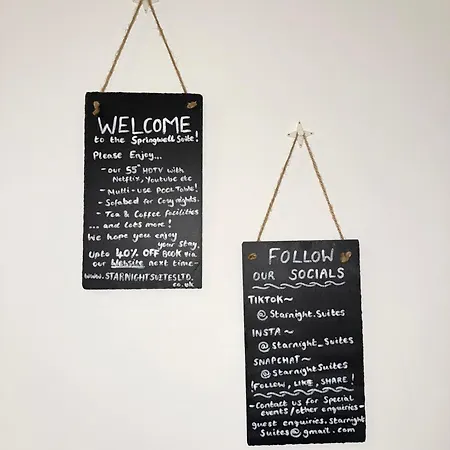 WELCOME
to the Springwell Suite!
Please Enjoy...
- Our 55" HDTV with
Netflix, Youtube etc
- Multi-use POOL Table!
- Sofabed for Cosy nights.
- Tea & Coffee facilities
... and lots more!
We hope you enjoy
your Stay.
Upto 40% OFF Book via
our Website next time-
www.STARNIGHTSUITESLTD.
co.uk
FOLLOW
OUR SOCIALS
TIKTOK~
@Starnight.Suites
INSTA~
@Starnight_Suites
SNAPCHAT~
@StarnightSuites
!FOLLOW, LIKE, SHARE!
-Contact us for Special
events/other enquiries-
guest enquiries.Starnight
Suites@gmail.com